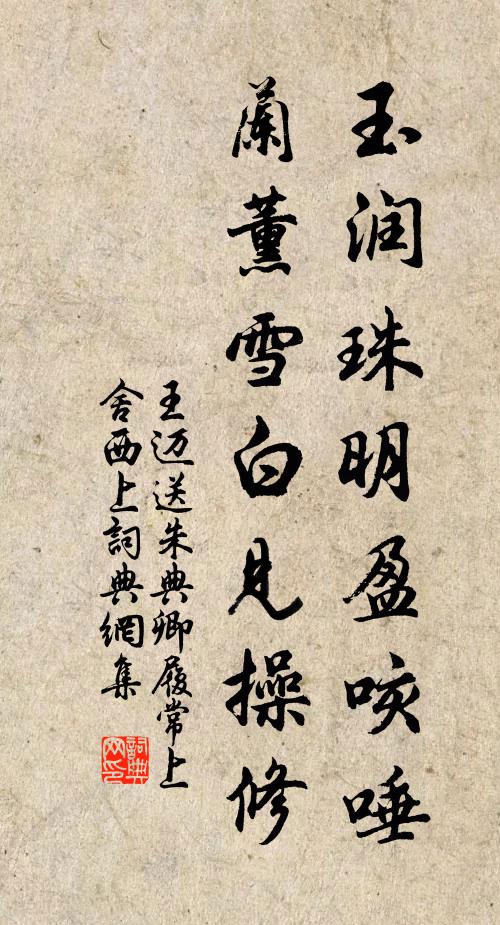 玉润珠明盈咳唾
蘭薰雪白見操修
王迈送朱典卿履常上
舍西上詞典網集
詞典网印